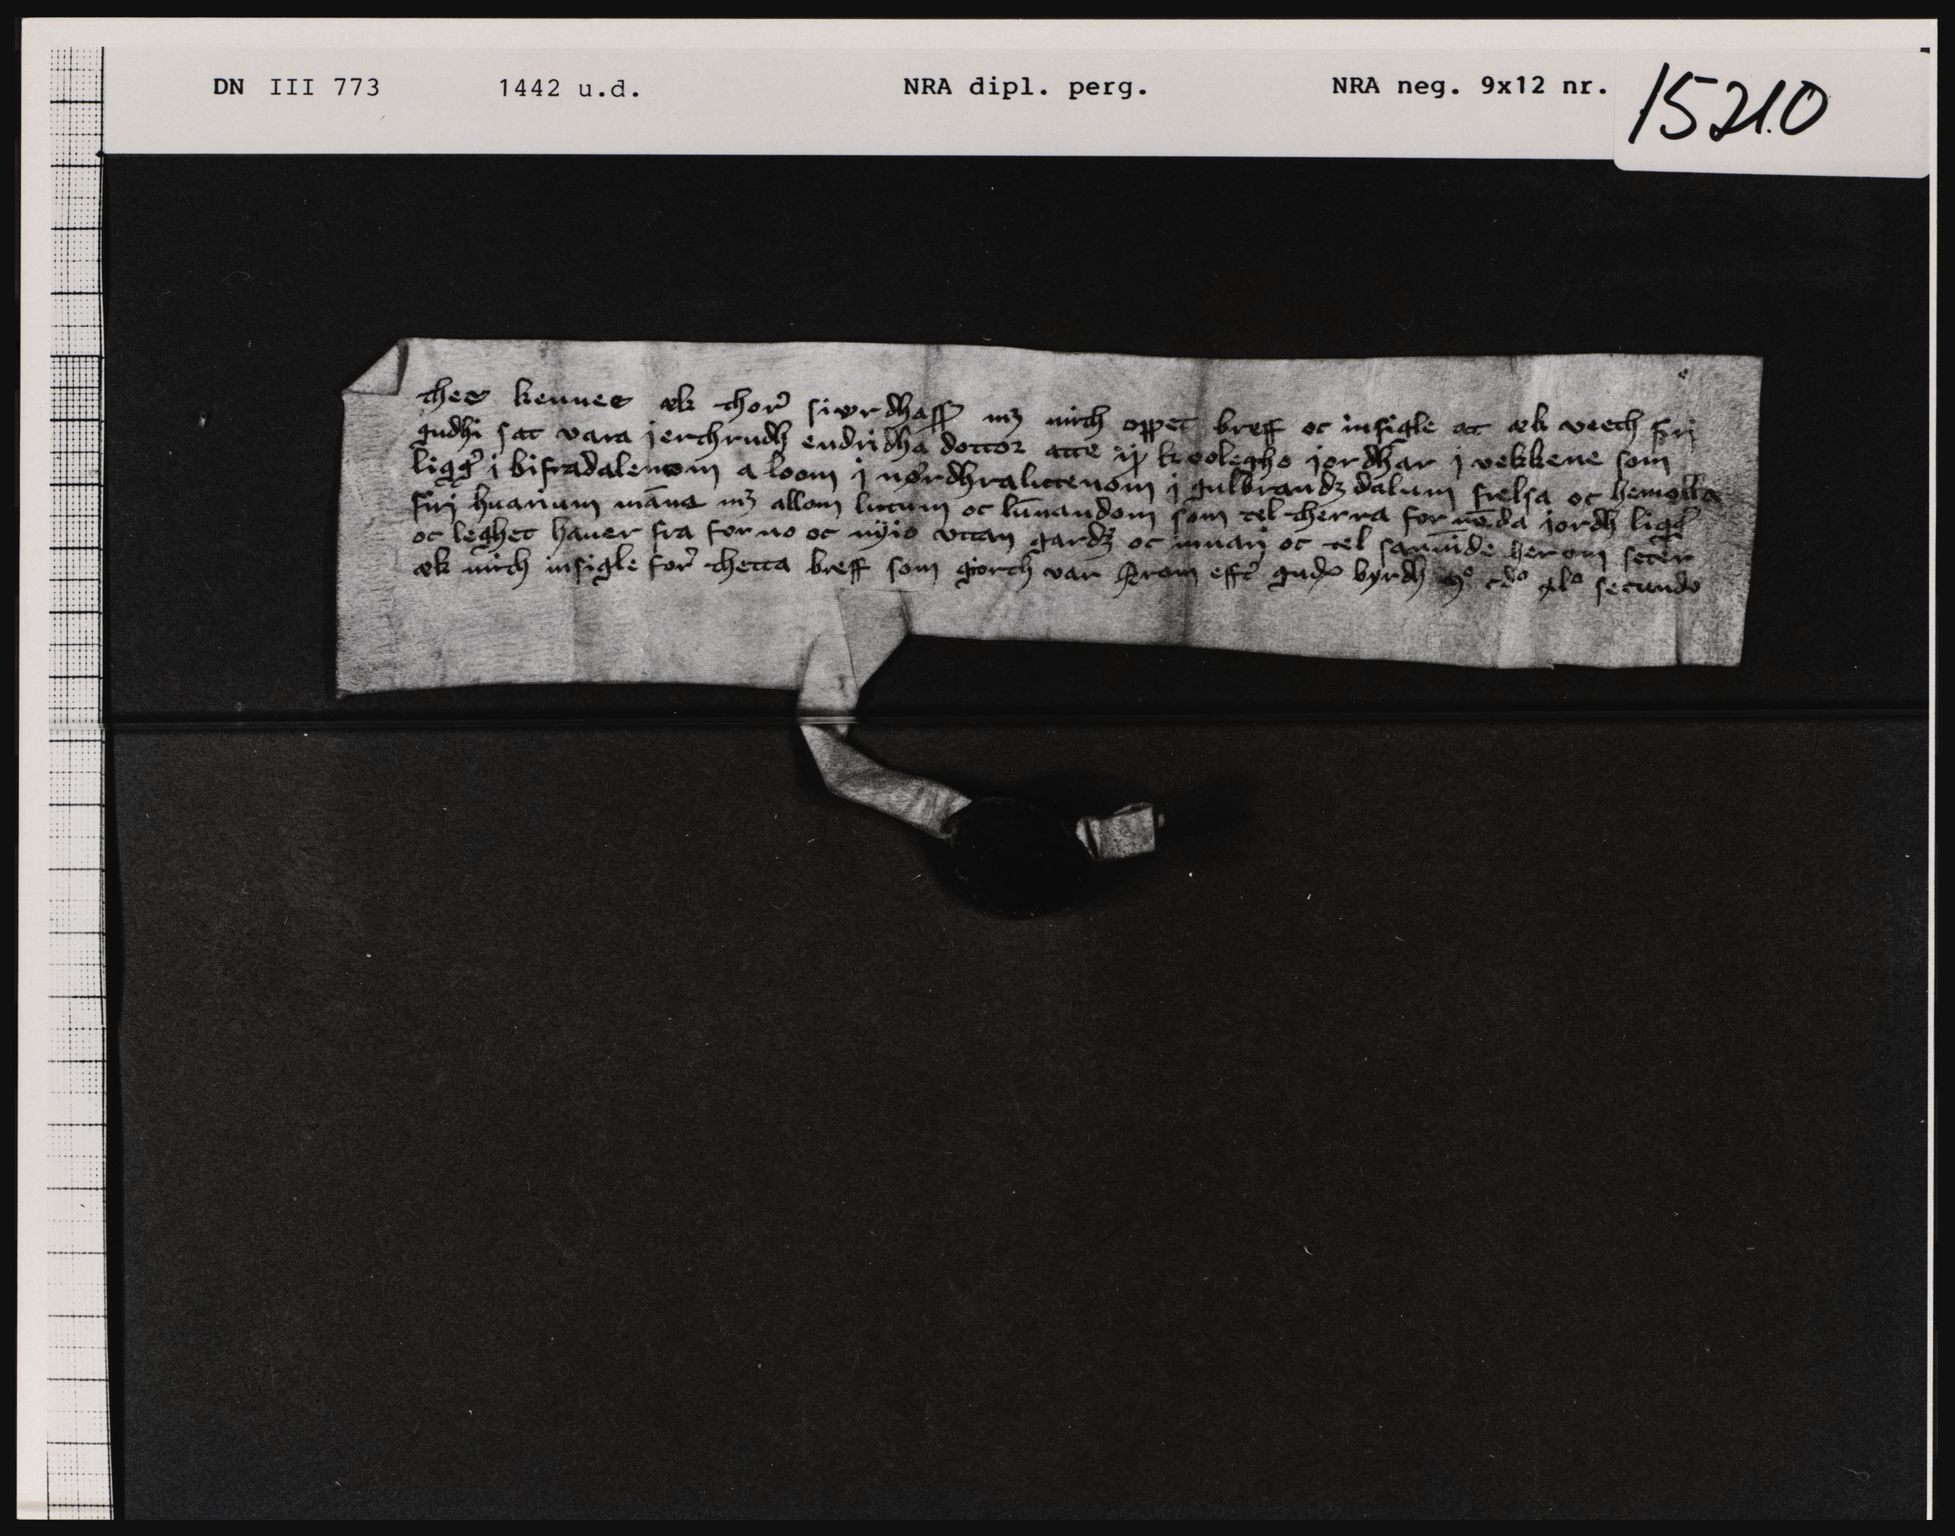 DN III 773 1442 u.d. NRA dipl. perg. NRA neg. 9x12 nr. 15210
thes kennes æk thor siwrdhass mz mith oppet breff oc insigle at æk veeth firi
gudhi sat vara jerthrudh endridha dottor atte ij kooleghe jordhar j vekkene som
ligg i bifradalenom a loom j nørdhraluttenom j gulbrandz dalum frelsa oc hemolla
firj huarium mans mz allom lutum oc lunnandom som tel therra for nēda jordh ligg
oc leghet hauer fra forno oc nyio vttan gardz oc innan oc tel sannīde her om seter
æk mith insigle for thetta breff som giorth var effʼt gudz byrdh mº cdº xlº secundo